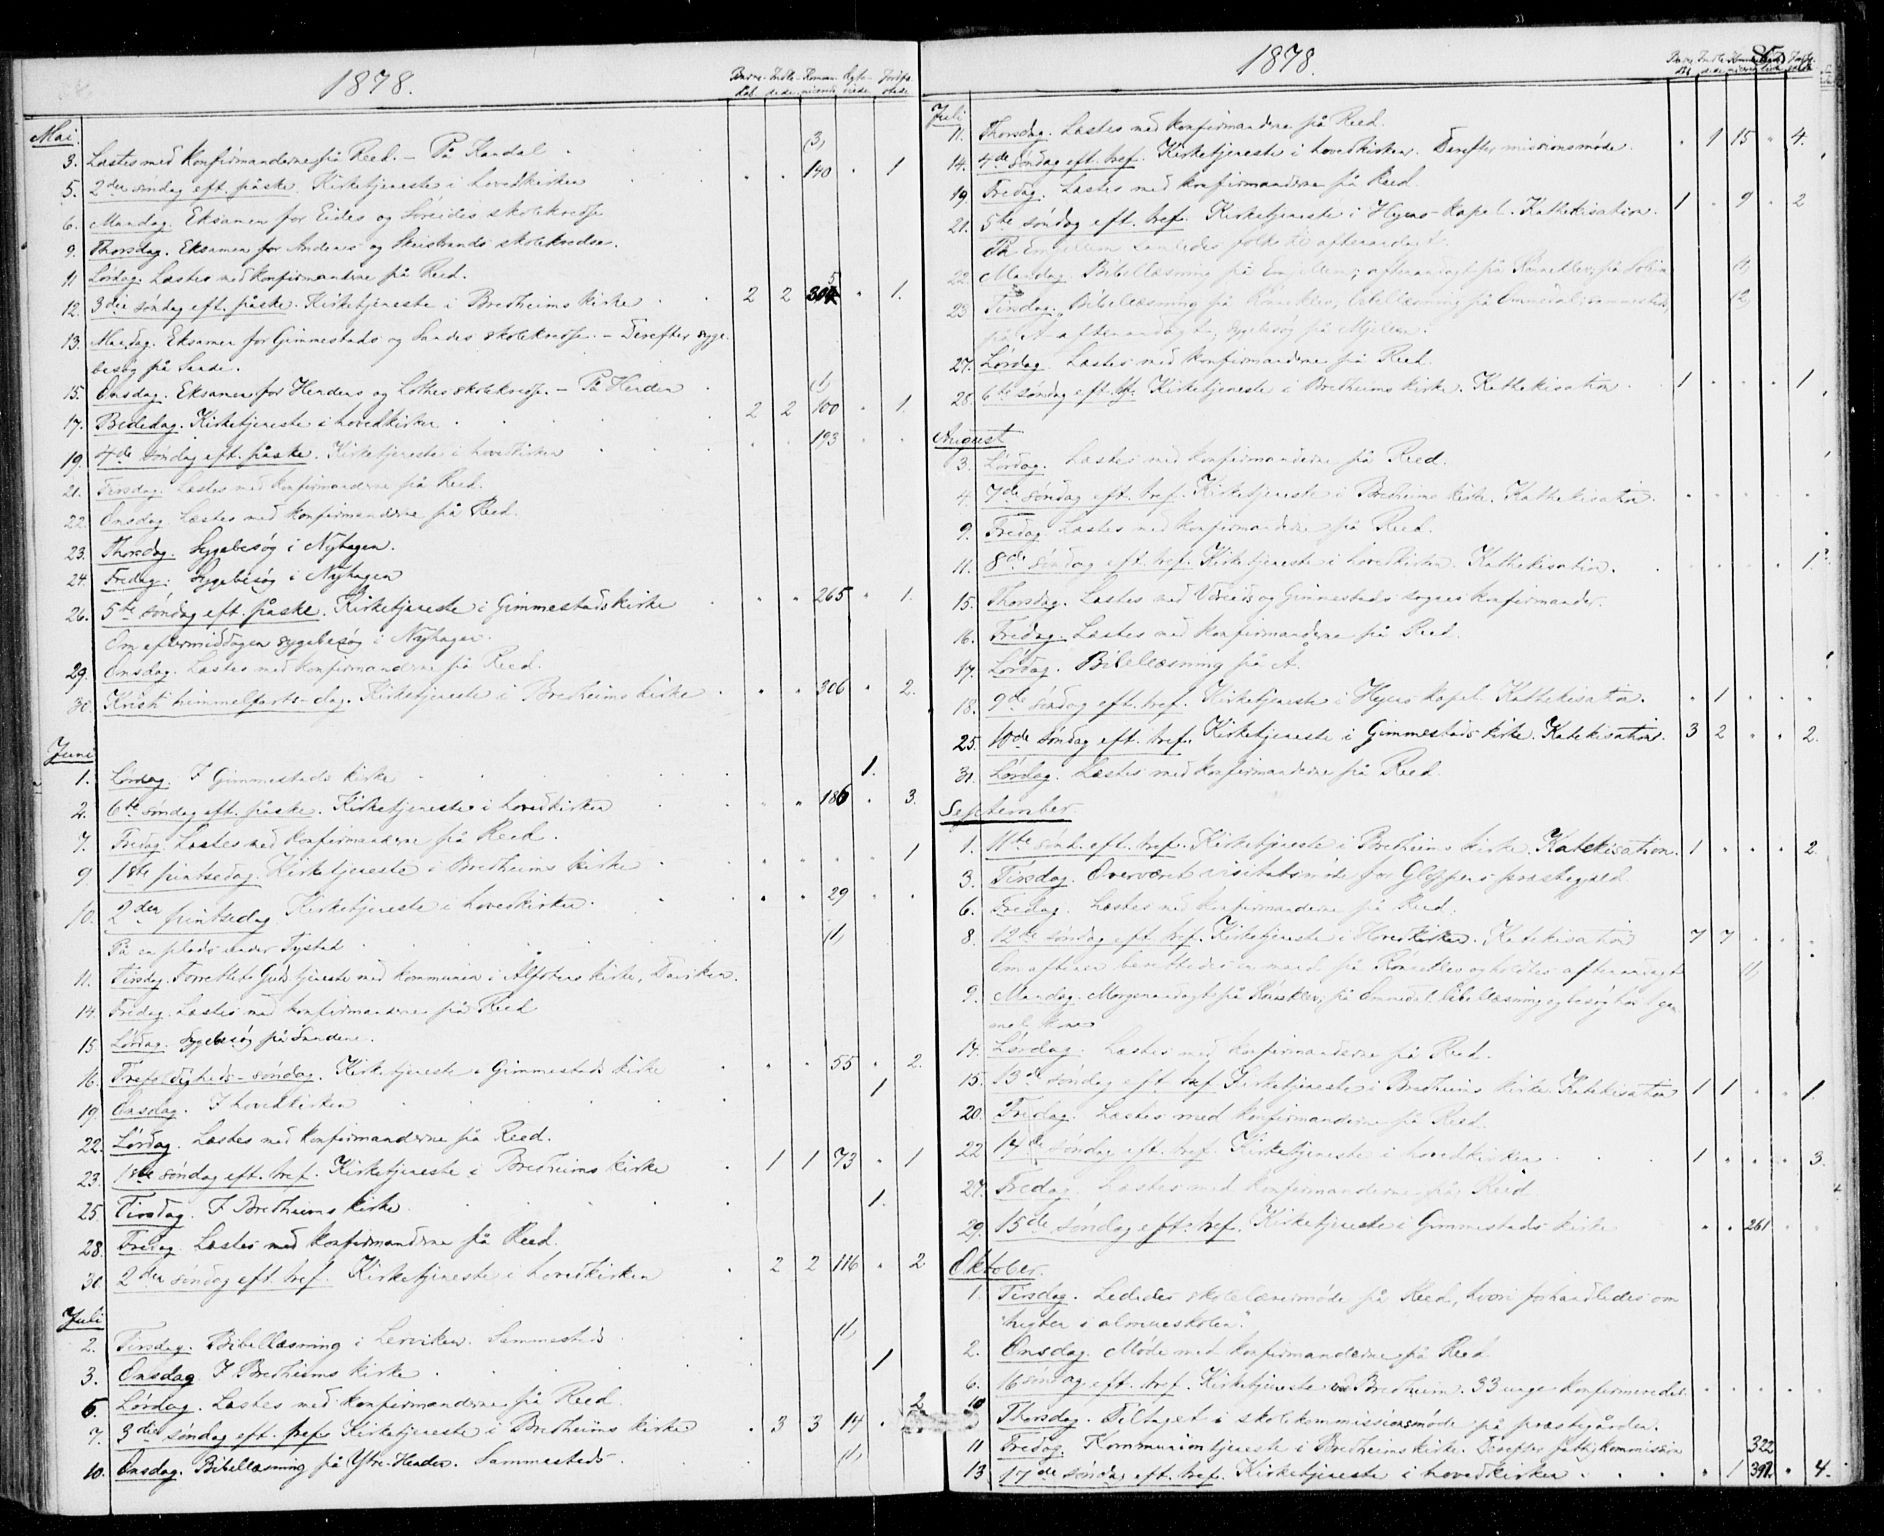 1878.
Mai.
3. Læstes med konfirmanderne på Reed. – På Kandal . (3)
5. 2den søndag eft. påske. Kirketjeneste i hovedkirken . . 140 . 1
6. Mandag. Eksamen for Eides og Søreides skolekredse
9. Thorsdag. Eksamen for Andenes og Skeistrands skolekredse.
11 Lørdag. Læstes med konfirmanderne på Reed.
12. 3die søndag eft. påske. Kirketjeneste i Bredheims kirke 2 2 305 . 1.
13. Mandag. Eksamen for Gimmestads og Sandes skolekredse. – Derefter syge-
besøg på Sande.
15. Onsdag. Eksamen for Hendens og Lothes skolekredse. – På Henden (1)
17. Bededag. Kirketjeneste i hovedkirken . 2 2 100 . 1.
19. 4de søndag eft. påske. Kirketjeneste i hovedkirken . . 193 . .
21. Tirsdag. Læstes med konfirmanderne på Reed.
22. Onsdag. Læstes med konfirmanderne på Reed.
23. Thorsdag. Sygebesøg i Nyhagen.
24. Fredag. Sygebesøg i Nyhagen
26. 5te søndag eft. påske. Kirketjeneste i Gimmestads kirke . . 265 . 1.
Om eftermiddagen sygebesøg i Nyhagen.
29. Onsdag. Læstes med konfirmanderne på Reed.
30. Kristi himmelfarts-dag. Kirketjeneste i Bredheims kirke . . 306 . 2.
Juni
1. Lørdag. I Gimmestads kirke . 1.
2. 6te søndag eft. påske. Kirketjeneste i hovedkirken . . 186 . 3.
7. Fredag Læstes med konfirmanderne på Reed.
9. 1ste pintsedag. Kirketjeneste i Bredheims kirke . . . . 1
10. 2den pintsedag Kirketjeneste i hovedkirken . . 29 . .
På en plads under Tystad . (1)
11. Tirsdag. Forrettet Gudstjeneste med kommunion i Alfotens kirke, Daviken.
14. Fredag. Læstes med konfirmanderne på Reed
15. Lørdag. Sygebesøg på Sandene.
16. Trefoldigheds-søndag. Kirketjeneste i Gimmestads kirke . . 55 . 2.
19. Onsdag. I hovedkirken . 1
22. Lørdag. Læstes med konfirmanderne på Reed.
23. 1ste søndag eft. tref. Kirketjeneste i Bredheims kirke . 1 1 73 . 1
25. Tirsdag. I Bredheims kirke . 1.
28. Fredag. Læstes med konfirmanderne på Reed.
30. 2den søndag eft. tref. Kirketjeneste i hovedkirken . 2 2 116 . 2
Juli
2. Tirsdag. Bibellæsning i Lervika. Sammesteds (1)
3. Onsdag I Bredheims kirke . 1
6. Lørdag. Læstes med konfirmanderne på Reed
7. 3die søndag eft. tref. Kirketjeneste i Bredheims kirke . 3 3 14 . 2
10. Onsdag. Bibellæsning på Ytre-Henden. Sammesteds . (1)
1878.
Juli
11. Thorsdag. Læstes med konfirmanderne på Reed.
14. 4de søndag eft. tref. Kirketjeneste i hovedkirken. Derefter missionsmøde. . 1 15 . 4.
19 Fredag. Læstes med konfirmanderne på Reed.
21. 5te søndag eft. tref. Kirketjeneste i Hyens-kapel. Kathekisation. 1 . 9 . 2
På samledes folk til aftenandagt.
22. Mandag. Bibellæsning på aftenandagt på Rønneklev; på (1)
23. Tirsdag. Bibellæsning på Rønneklev, bibellæsning på Ommedal; sammesteds (2)
på Å aftenandagt; sygebesøg på
27. Lørdag. Læstes med konfirmanderne på Reed
28. 6te søndag eft. tref. Kirketjeneste i Bredheims kirke. Kathekisation. 1 . . . 1
August
3. Lørdag. Læstes med konfirmanderne på Reed.
4. 7de søndag eft. tref. Kirketjeneste i Bredheims kirke. Kathekisation. . . . . .
9. Fredag Læstes med konfirmanderne på Reed.
11. 8de søndag eft. tref. Kirketjeneste i hovedkirken. Kathekisation. . . . . 1.
15. Thorsdag. Læstes med Vereids og Gimmestads sognes konfirmander.
16. Fredag. Læstes med konfirmanderne på Reed.
17. Lørdag. Bibellæsning på Å.
18. 9de søndag eft. tref. Kirketjeneste i Hyens kapel. Kathekisation. . 1 . . .
25. 10de søndag eft. tref. Kirketjeneste i Gimmestads kirke. Katekisation. 3 2 . . 2.
31. Lørdag. Læstes med konfirmanderne på Reed.
September.
1. 11te sønd. eft. tref. Kirketjeneste i Bredheims kirke. Katekisation. 1 . . . 2.
3. Tirsdag. Overværet visitatsmøde for Gloppens præstegjæld
6. Fredag. Læstes med konfirmanderne på Reed.
8. 12te søndag eft. tref. Kirketjeneste i Hovedkirken. Katekisation 7 7 . . .
Om aftenen berettedes en mand på Rønneklev og holdtes aftenandagt (1)
9. Mandag. Morgenandagt på Rønneklev; på Ommedal bibellæsning og besøg hos 1 gam-
mel kone
14. Lørdag. Læstes med konfirmanderne på Reed.
15. 13de søndag eft. tref. Kirketjeneste i Bredheims kirke. Katekisation 1 1 . . 1
20. Fredag. Læstes med konfirmanderne på Reed.
22 14de søndag eft. tref. Kirketjeneste i hovedkirken 1 . . . 3.
27. Fredag. Læstes med konfirmanderne på Reed
29. 15de søndag eft. tref. Kirketjeneste i Gimmestads kirke . . 261 . .
Oktober.
1. Tirsdag. Lededes skolelærermøde på Reed, hvori forhandledes om
"hygten i almueskolen".
2. Onsdag. Møde med konfirmanderne på Reed.
6. 16 søndag eft. tref. Kirketjeneste ved Bredheim. 33 unge konfirmeredes. . . . . .
10 Thorsdag. Deltaget i skolekommissionsmøde på præstegården.
11 Fredag. Kommuniontjeneste i Bredheims kirke. Derefter fattigkommission 322
13 17de søndag eft. tref. Kirketjeneste i hovedkirken . 1 391. . 4.